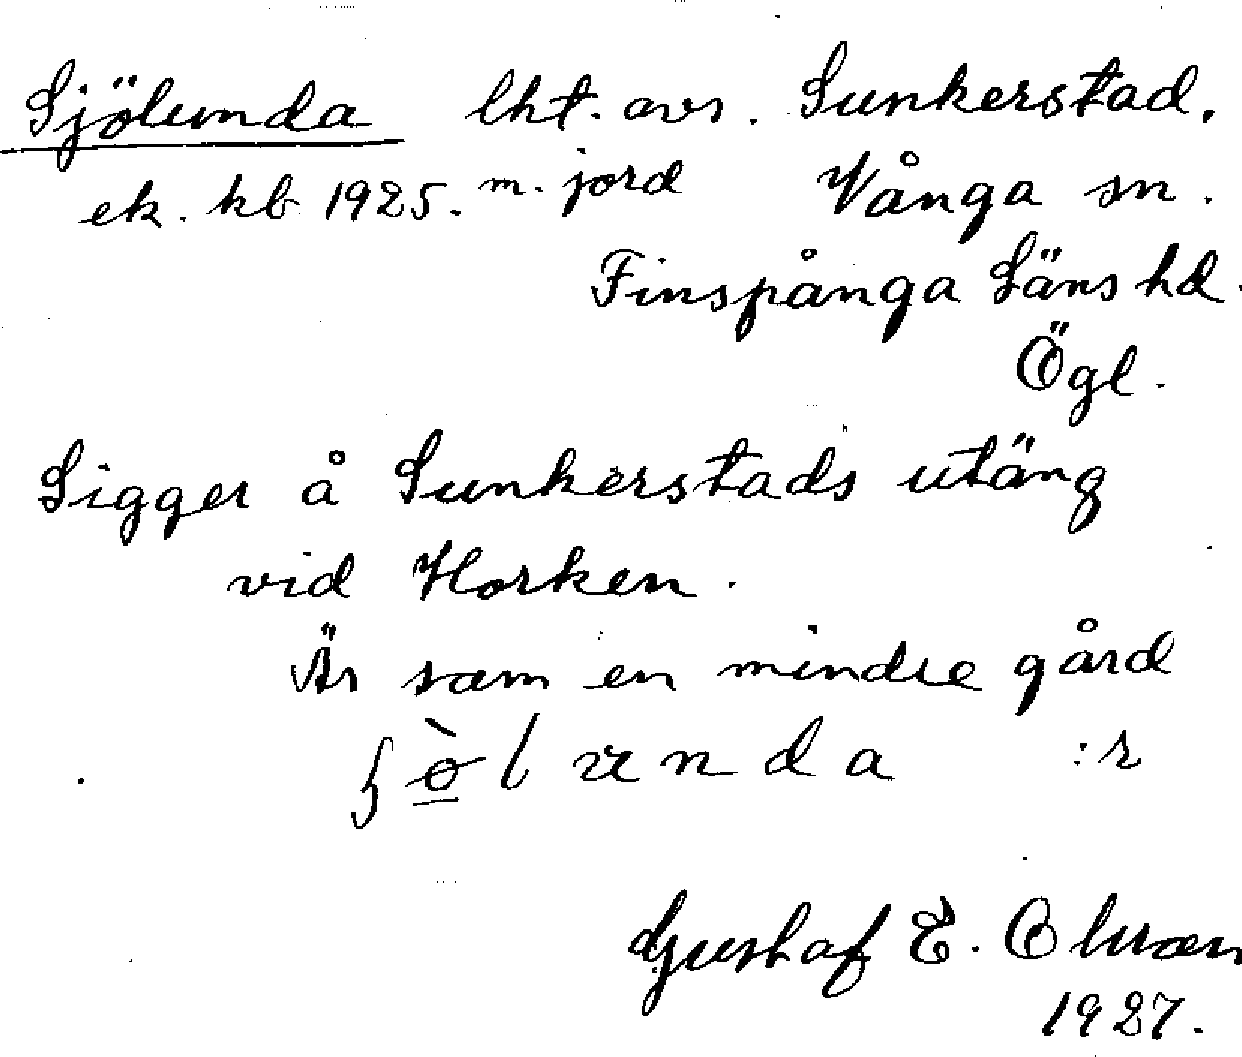 Sjölunda lht. avs. Lunkerstad,
ek. kb 1925. m. jord Vånga sn.
Finspånga Läns hd.
Ögl.
Ligger å Lunkerstads utäng
vid Horken.
Är som en mindre gård
:r
Gustaf E. Olsson
1927.